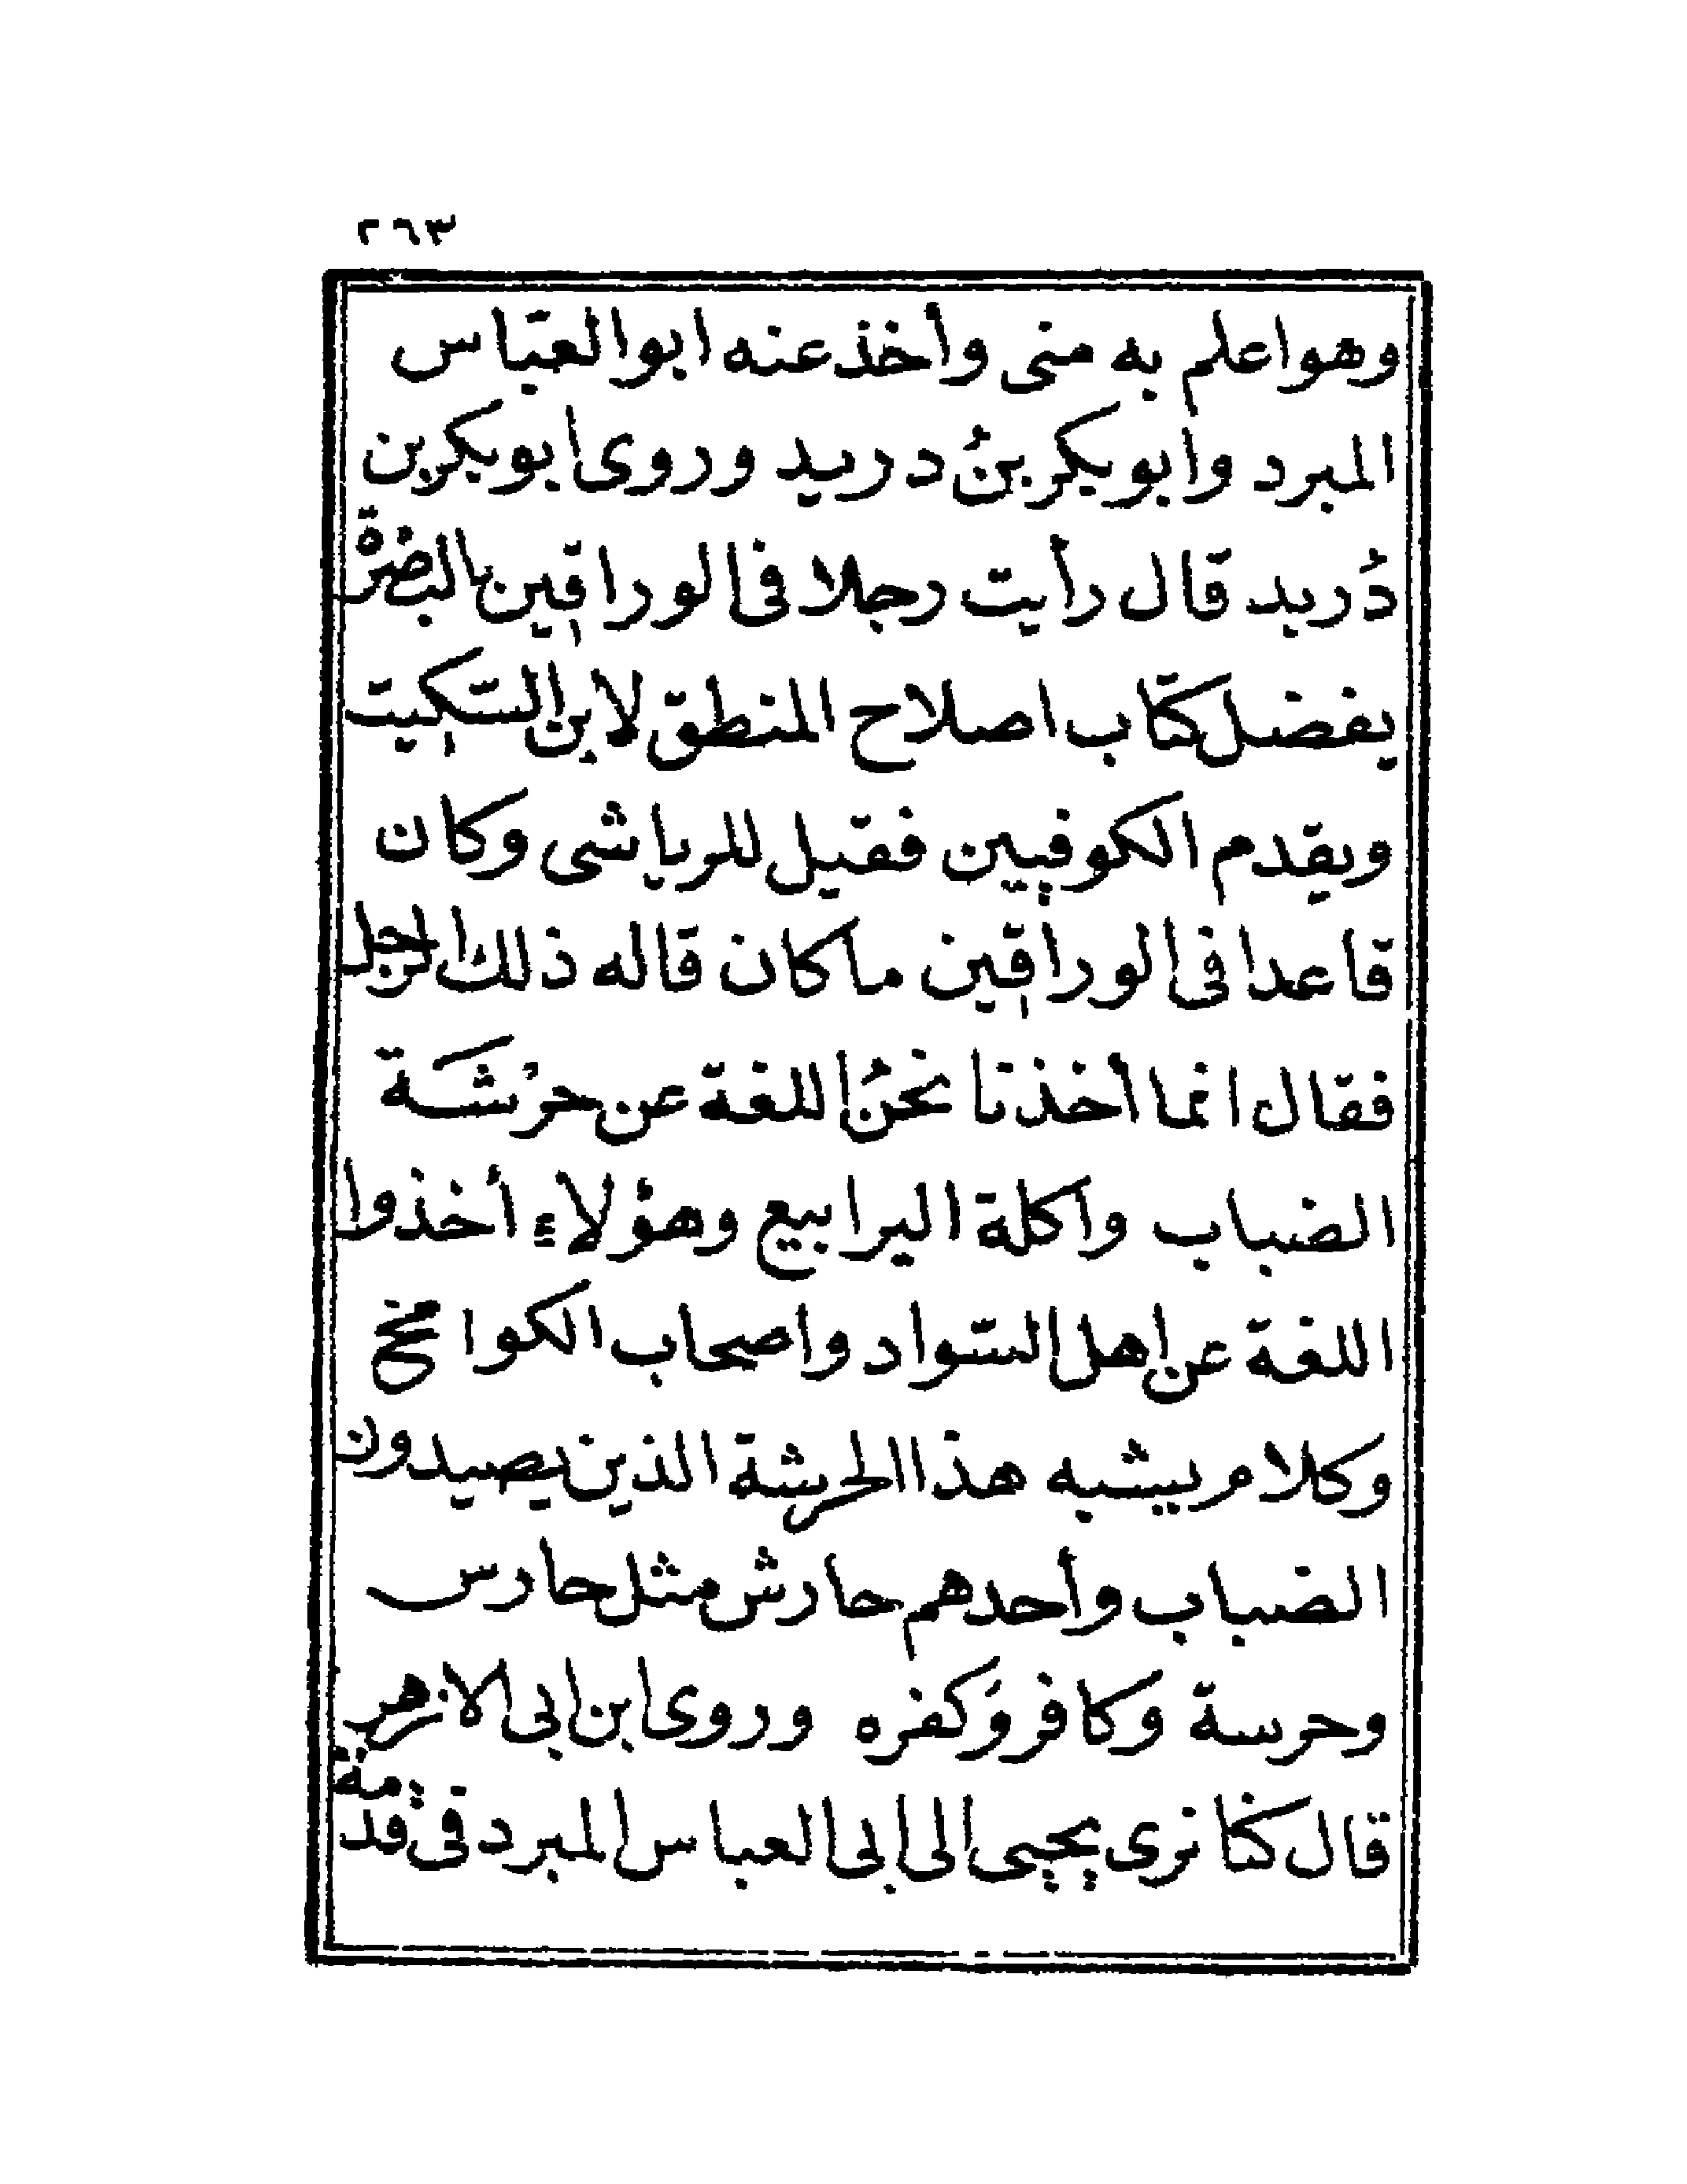 ٢٦٣
وهو اعلم به منى وأخذ عنه ابو العبّاس
المبرد وابو بكر بنُ دريد وروى ابو بكر بن
دُريد قال رأيت رجلا فى الوراقين بالبصرة
يفضل كتاب اصلاح المنطق لابن السّكيت
ويقدم الكوفيين فقيل للرياشى وكان
قاعدا فى الوراقين ما كان قاله ذلك الرجل
فقال انما أخذنا نحنُ اللغة عن حرْشَة
الضباب وأكلة اليرابيع وهؤلاءِ أخذوا
اللغة عن اهل السّواد واصحاب الكوامخ
وكلام يشبه هذا الحرشة الذين يصيدون
الضباب وأحدهم حارش مثل حارس
وحرسة وكافر وَكفره وروى ابن ابى الازهر
قال كنّا نرى يجيى الى ابى العباس المبرد فى قدمة